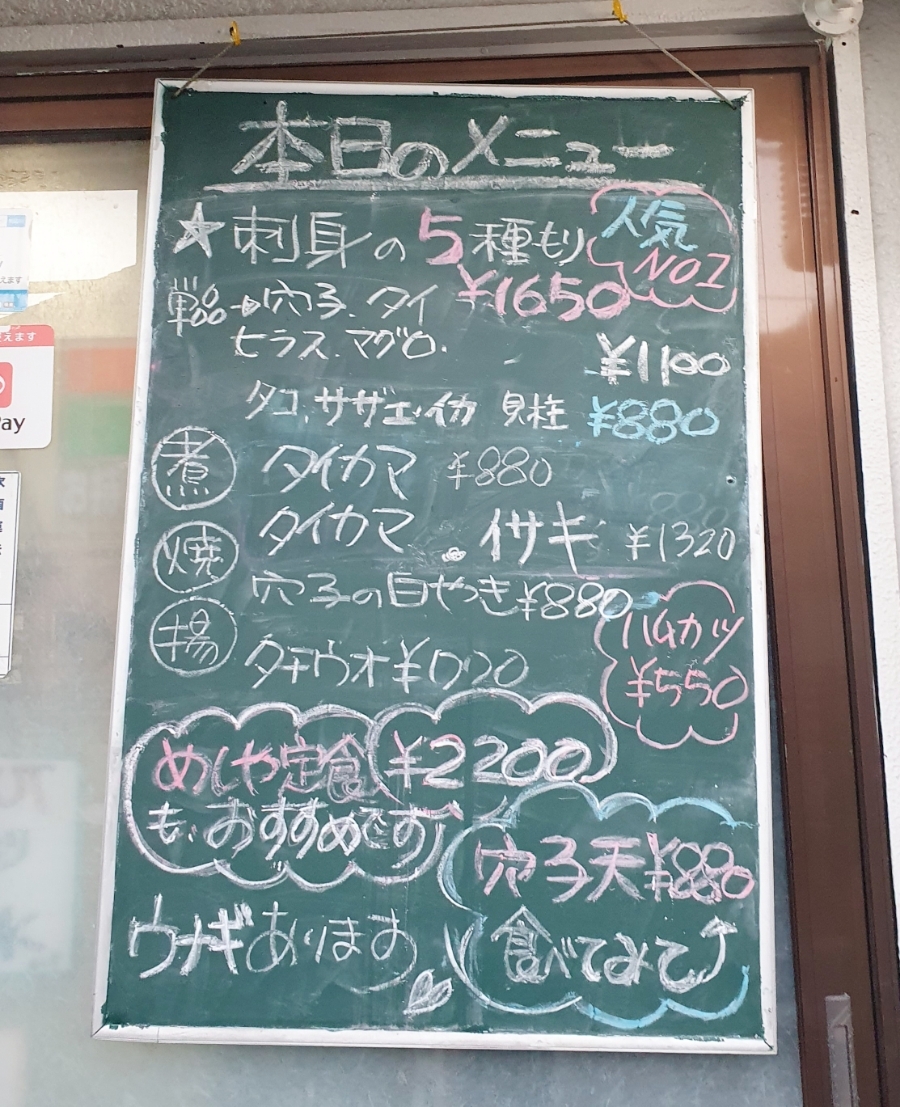 本日のメニュー
★刺身の5種もり
人気
NO1
単品→穴子.タイ ¥1650
ヒラス.マグロ. ¥1100
タコ.サザエ.イカ 貝柱 ¥880
煮 タイカマ ¥880
焼 タイカマ.イサギ ¥1320
穴子の白やき¥880
揚 タチウオ¥
ハムカツ
¥550
めしや定食 ¥2200
も、おすすめです
穴子天¥880
食べてみて
ウナギあります
Pay